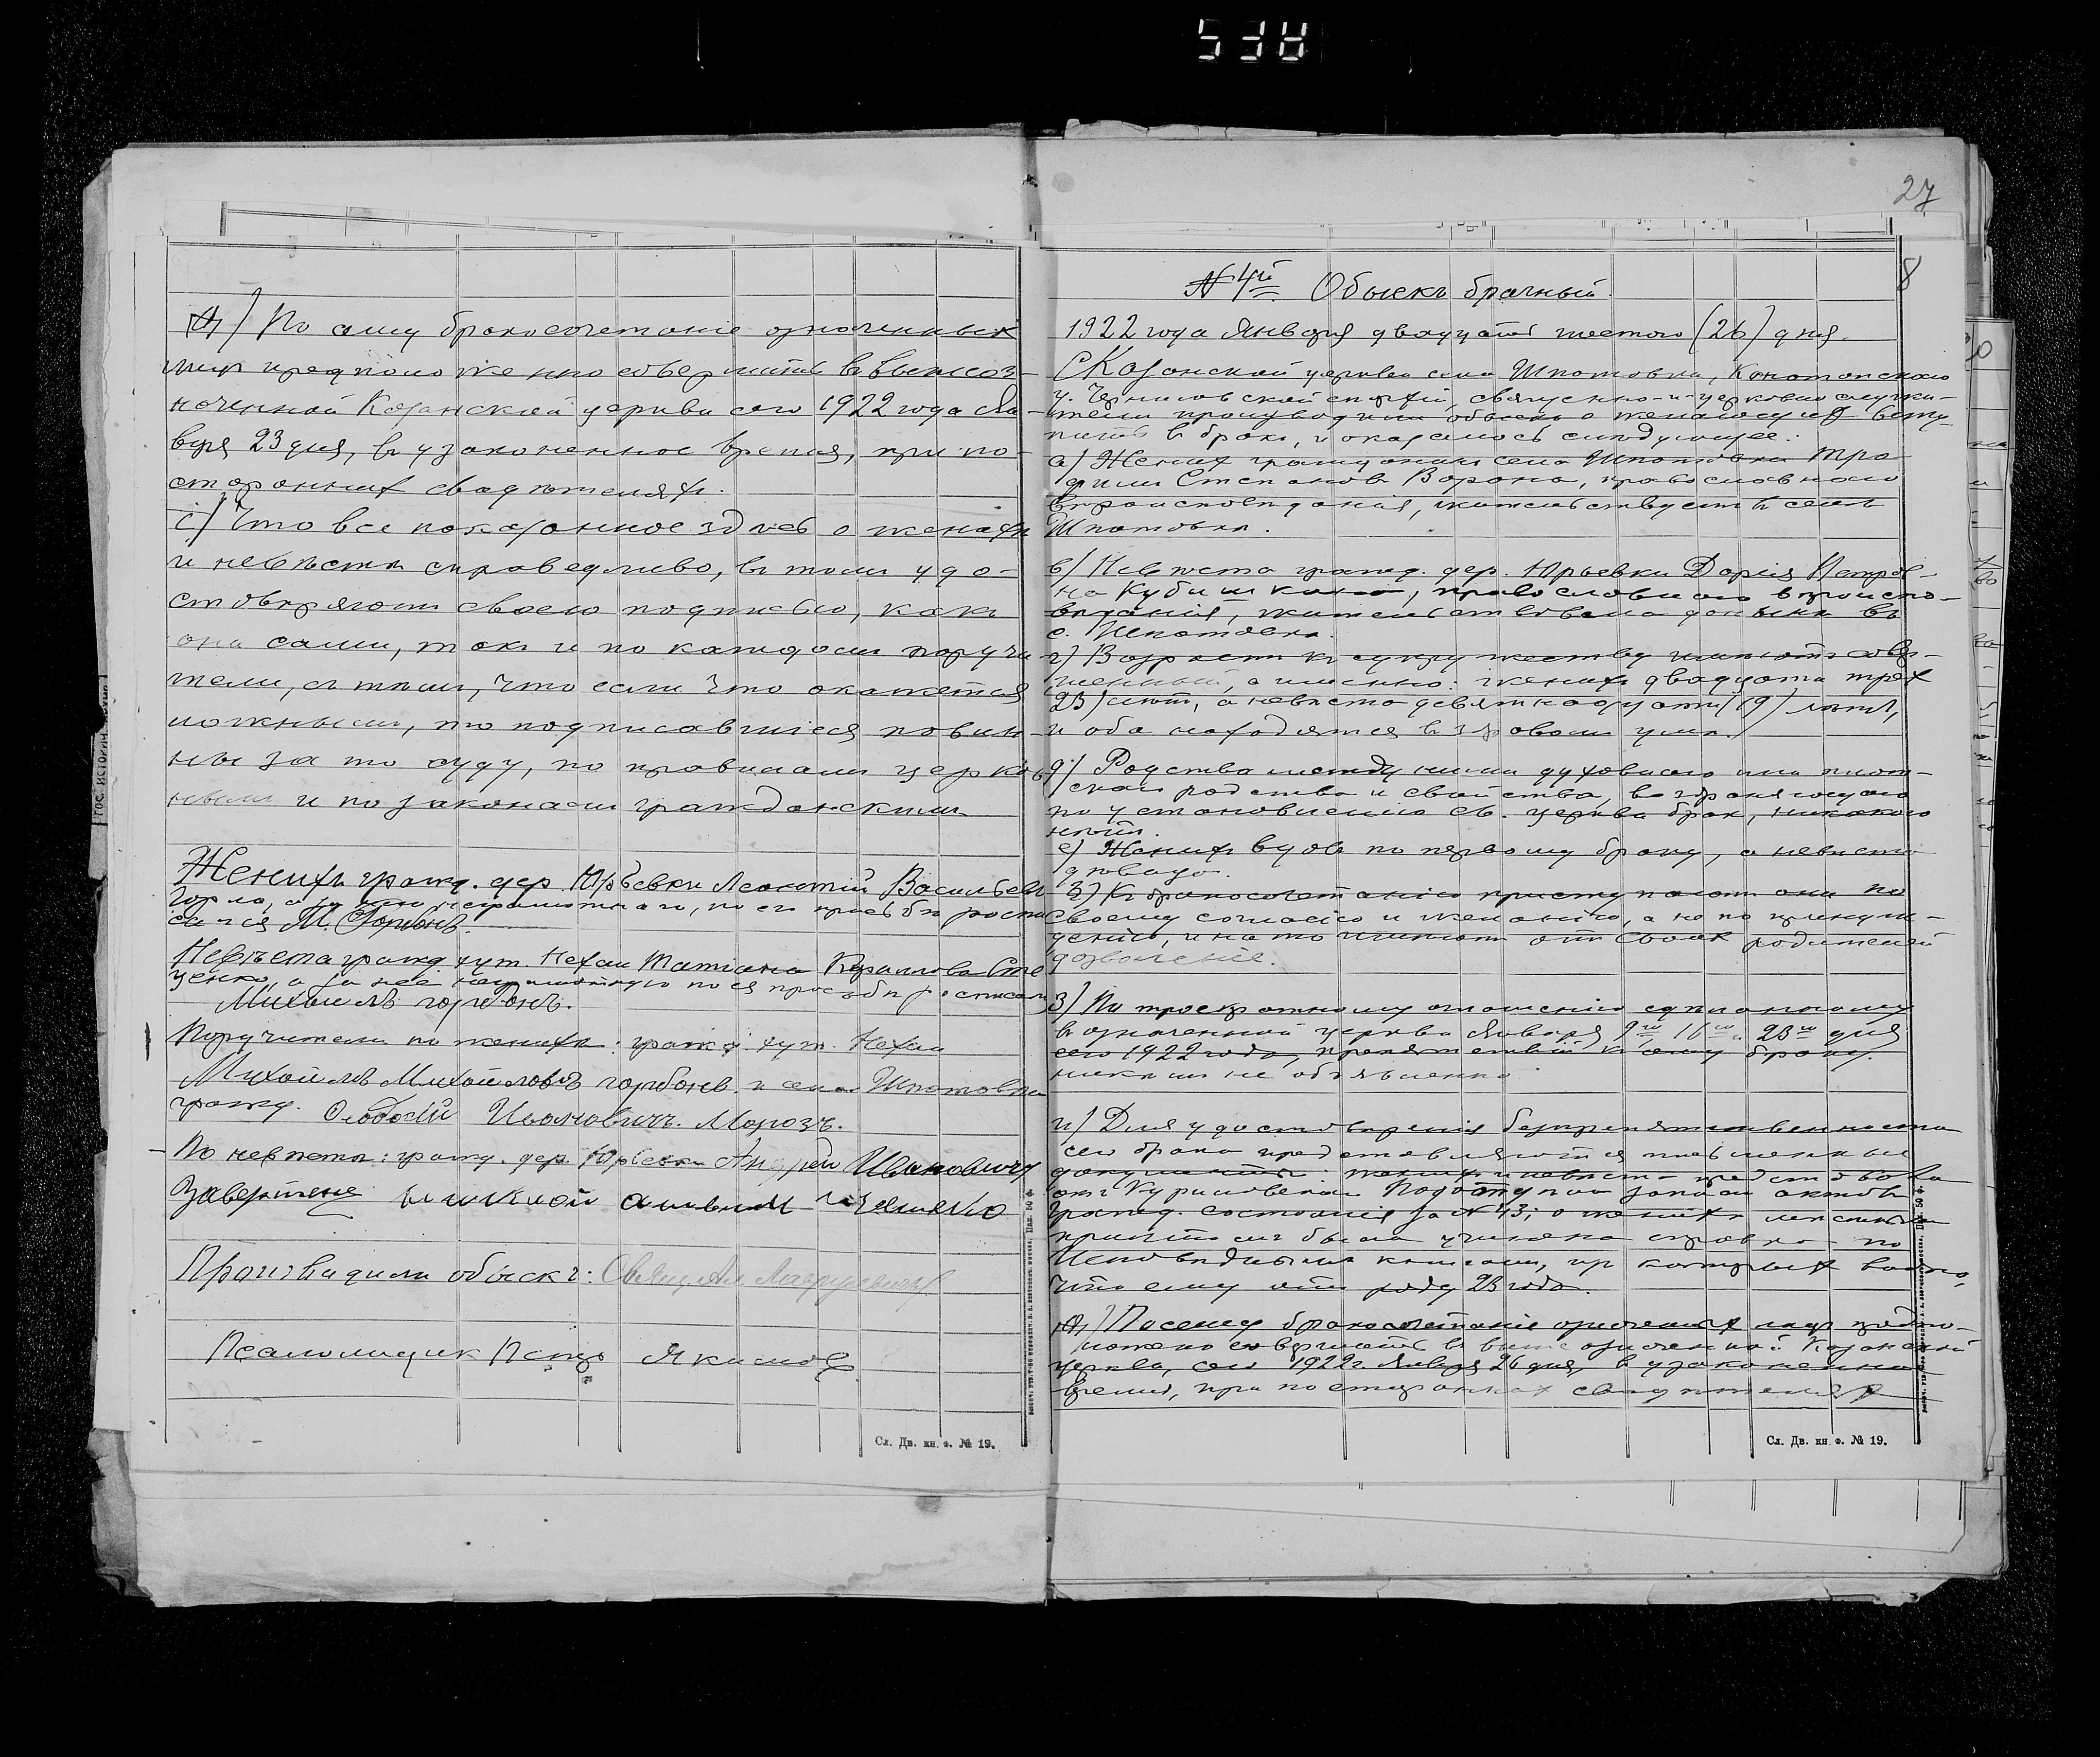 538
27
8
І) По сему бракосочетаніе означенныхъ
лицъ предположенно совершить въ вышеоз-
наченной Казанской церкви сего 1922 года Ян-
варя 23 дня, въ узаконенное время, при по-
стороннихъ свидѣтеляхъ.
с) Что все показанное здѣсь о женихѣ
и невѣстѣ справедливо, въ томъ удо-
стовѣряютъ своею подписью, какъ
они сами, такъ и по каждомъ поручи-
тели, съ тѣмъ, что если что окажется
ложнымъ, то подписавшіеся повин-
ны за то суду, по правиламъ церков-
нымъ и по законамъ гражданскимъ
Женихъ гражд. дер. Юрьевки Леонтій Васильевъ
неграмотнаго, по его просьбѣ роспи
сался М.
Невѣста гражд. хут. Нехаи Татіана Кириллова
ценко, а за нее неграмотную по ея просьбѣ росписался
Михаилъ Горбонъ.
Поручители по женихѣ: гражд. хут. Нехаи
Михаилъ Михайловъ Горбонев. и села Шпотовки
гражд. Ивановичъ Морозъ.
По невѣстѣ: гражд. дер. Юрьевки Андрей Ивановичъ
Производили обыскъ: Священ. Ал.
Псаломщик Петръ Якимов
Сл. Дв. кн. ф. № 19.
№ 4й Обыскъ брачный.
1922 года Января двадцать шестого (26) дня.
С Казанской церкви села Шпотовки, Конотопскаго
у. Черниговской епархій, священно-и-церковно служи-
тели производили обыскъ о желающихъ всту-
пить въ бракъ, и оказалось слѣдующее:
а) Женихъ гражданинъ села Шпотовки Тро
фимъ Степановъ Ворона, православнаго
вѣроисповѣданія, жительствуетъ въ селѣ
Шпотовкѣ.
в) Невѣста гражд. дер. Юрьевки Дарія Петров-
на Кубишкина, православнаго вѣроиспо-
вѣданія, жительствовала донынѣ въ
с. Шпотовкѣ.
г) Возрастъ къ супружеству имѣютъ совер-
шенный, а именно: женихъ двадцати трех
23) лѣт, а невѣста девятнадцати (19) лѣтъ,
и оба находятся въ здравомъ умѣ.
д) Родства между ними духовнаго или плот-
скаго родства и свойства, возбраняющаго
по установленію св. церкви брак, никакого
нѣтъ.
е) Женихъ вдовъ по первому браку, а невѣста
дѣвица.
з) Къ бракосочетанію приступаютъ они по
своему согласію и желанію, а не по принуж-
денію, и на то имѣютъ отъ своихъ родителей
дозволеніе.
з) По троекратному оглашенію сдѣланному
въ означенной церкви Января 9го, 16го и 23го дня
сего 1922 года, препятствій къ сему браку
никѣмъ не объявленно
и) Для удостовѣренія безпрепятственности
сего брака представляются письменные
документы: женихъ и невѣста представили
отъ Куриловскаго Подотдѣла записи актовъ
гражд. состоянія за № 43; о женихѣ
причтомъ была учинена справка по
Исповѣднымъ книгамъ, из которыхъ видно,
что ему отъ роду 23 года.
І) Посему бракосочетаніе означенныхъ лицъ предпо-
ложено совершить въ вышеозначенной Казанской
церкви, сего 1922 г. Января 26 дня, в узаконенное
время, при постороннихъ свидѣтеляхъ
Сл. Дв. кн. ф. № 19.